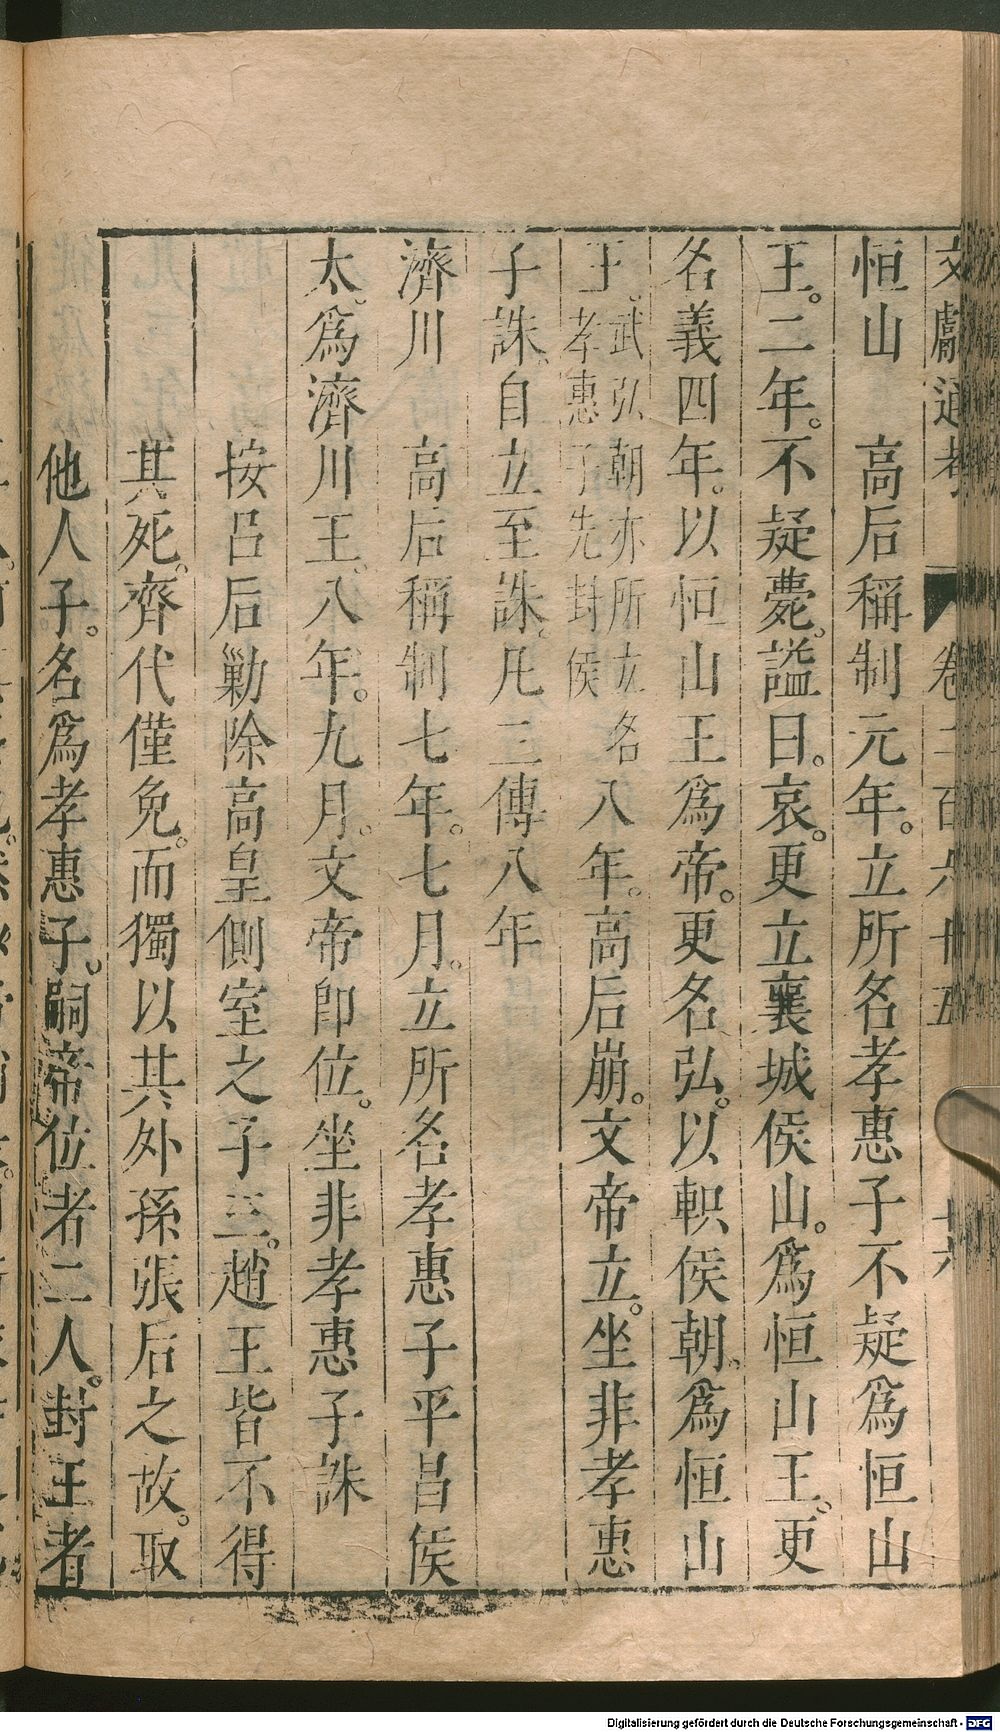 文獻通考 卷二百六十五 十六
恒山　高后稱制元年。立所名孝惠子不疑爲恒山
王。二年。不疑薨。謚曰。哀。更立襄城侯山。爲恒山王。更
名義四年。以恒山王爲帝。更名弘。以軹侯朝。爲恒山
王。武弘朝亦所立名孝惠子先封侯八年。高后崩。文帝立。坐非孝惠
子誅。自立至誅。凡三傳八年
濟川　高后稱制七年。七月。立所名孝惠子平昌侯
太。爲濟川王。八年。九月。文帝卽位。坐非孝惠子誅
按呂后勦除高皇側室之子三。趙王皆不得
其死。齊代僅免。而獨以其外孫張后之故。取
他人子。名爲孝惠子。嗣帝位者二人。封王者
Digitalisierung gefördert durch die Deutsche Forschungsgemeinschaft - DFG